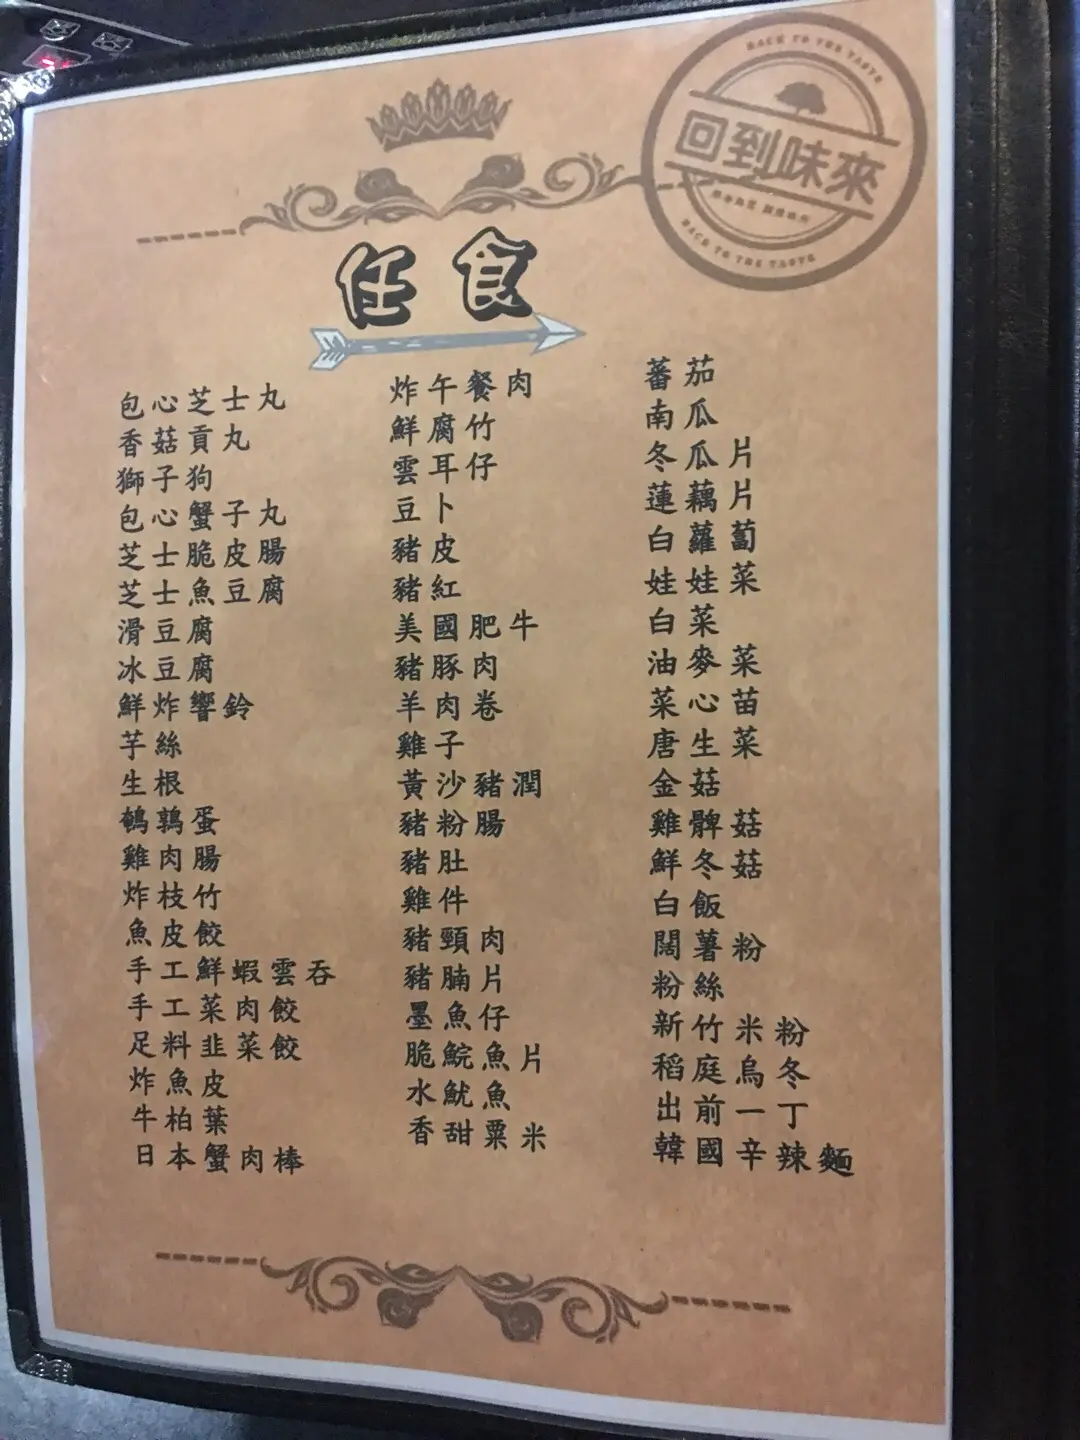 BACK TO THE TASTE
回到味來
BACK TO THE TASTE
任食
包心芝士丸
香菇貢丸
獅子狗
包心蟹子丸
芝士脆皮腸
芝士魚豆腐
滑豆腐
冰豆腐
鮮炸響鈴
芋絲
生根
鵪鶉蛋
雞肉腸
炸枝竹
魚皮餃
手工鮮蝦雲吞
手工菜肉餃
足料韭菜餃
炸魚皮
牛柏葉
日本蟹肉棒
炸午餐肉
鮮腐竹
雲耳仔
豆卜
豬皮
豬紅
美國肥牛
豬豚肉
羊肉卷
雞子
黃沙豬潤
豬粉腸
豬肚
雞件
豬頸肉
豬腩片
墨魚仔
脆鯇魚片
水魷魚
香甜粟米
蕃茄
南瓜
冬瓜片
蓮藕片
白蘿蔔
娃娃菜
白菜
油麥菜
菜心苗
唐生菜
金菇
雞髀菇
鮮冬菇
白飯
闊薯粉
粉絲
新竹米粉
稻庭烏冬
出前一丁
韓國辛辣麵